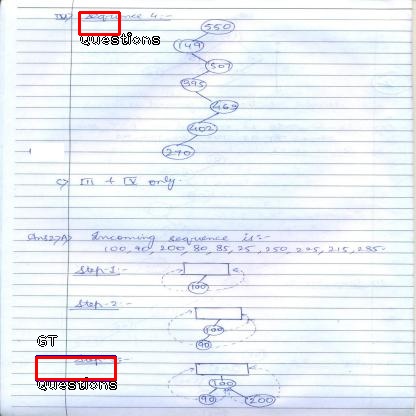 IV) Sequence 4:-
Questions
550
149
507
395
463
402
270
C) III & IV only.
Ans27A) Incoming sequence is:-
100, 90, 200, 80, 85, 25, 250, 225, 215, 235.
Step-1:-
100
Step-2:-
100
90
GT
Questions
100
90 200